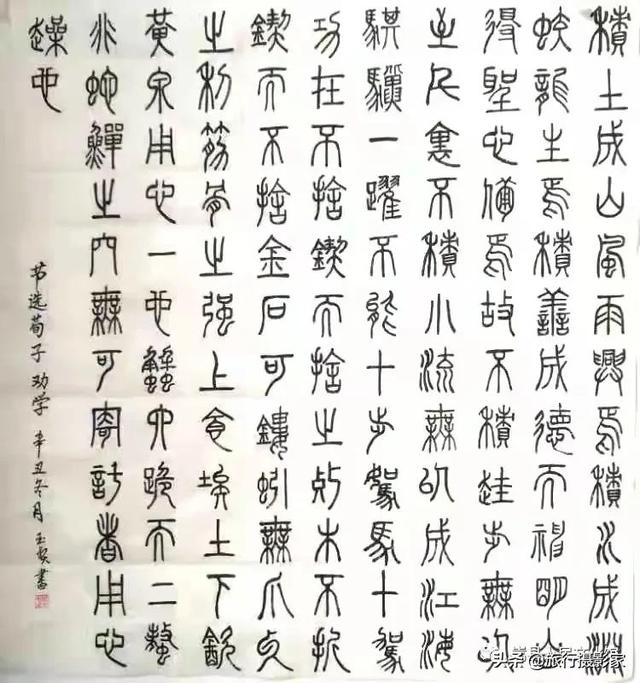 積土成山風雨興焉積水成淵
蛟龍生焉積善成德而神明自
得聖心備焉故不積跬步無以
至千里不積小流無以成江海
騏驥一躍不能十步駑馬十駕
功在不捨鍥而捨之朽木不折
鍥而不捨金石可鏤蚓無爪牙
之利筋骨之強上食埃土下飲
黃泉用心一也蟹六跪而二螯
非蛇鱓之穴無可寄託者用心
躁也
节选荀子 劝学 辛丑冬月 玉書
头条 @旅行摄影家